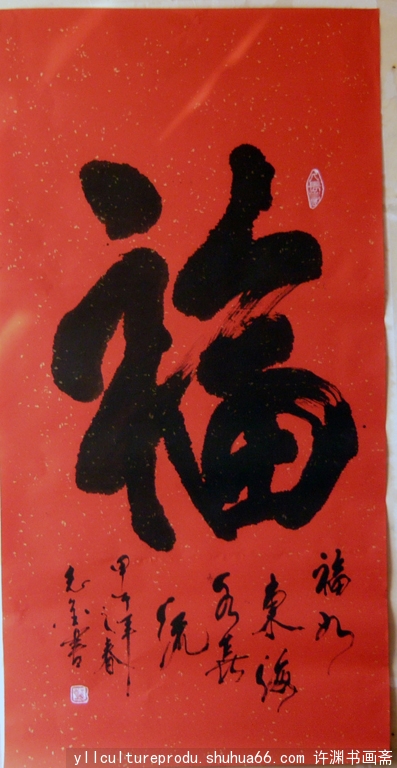 福
福如
東海
水長
流
甲午年
之春
志金書
yllcultureprodu.shuhua66.com 许渊书画斋